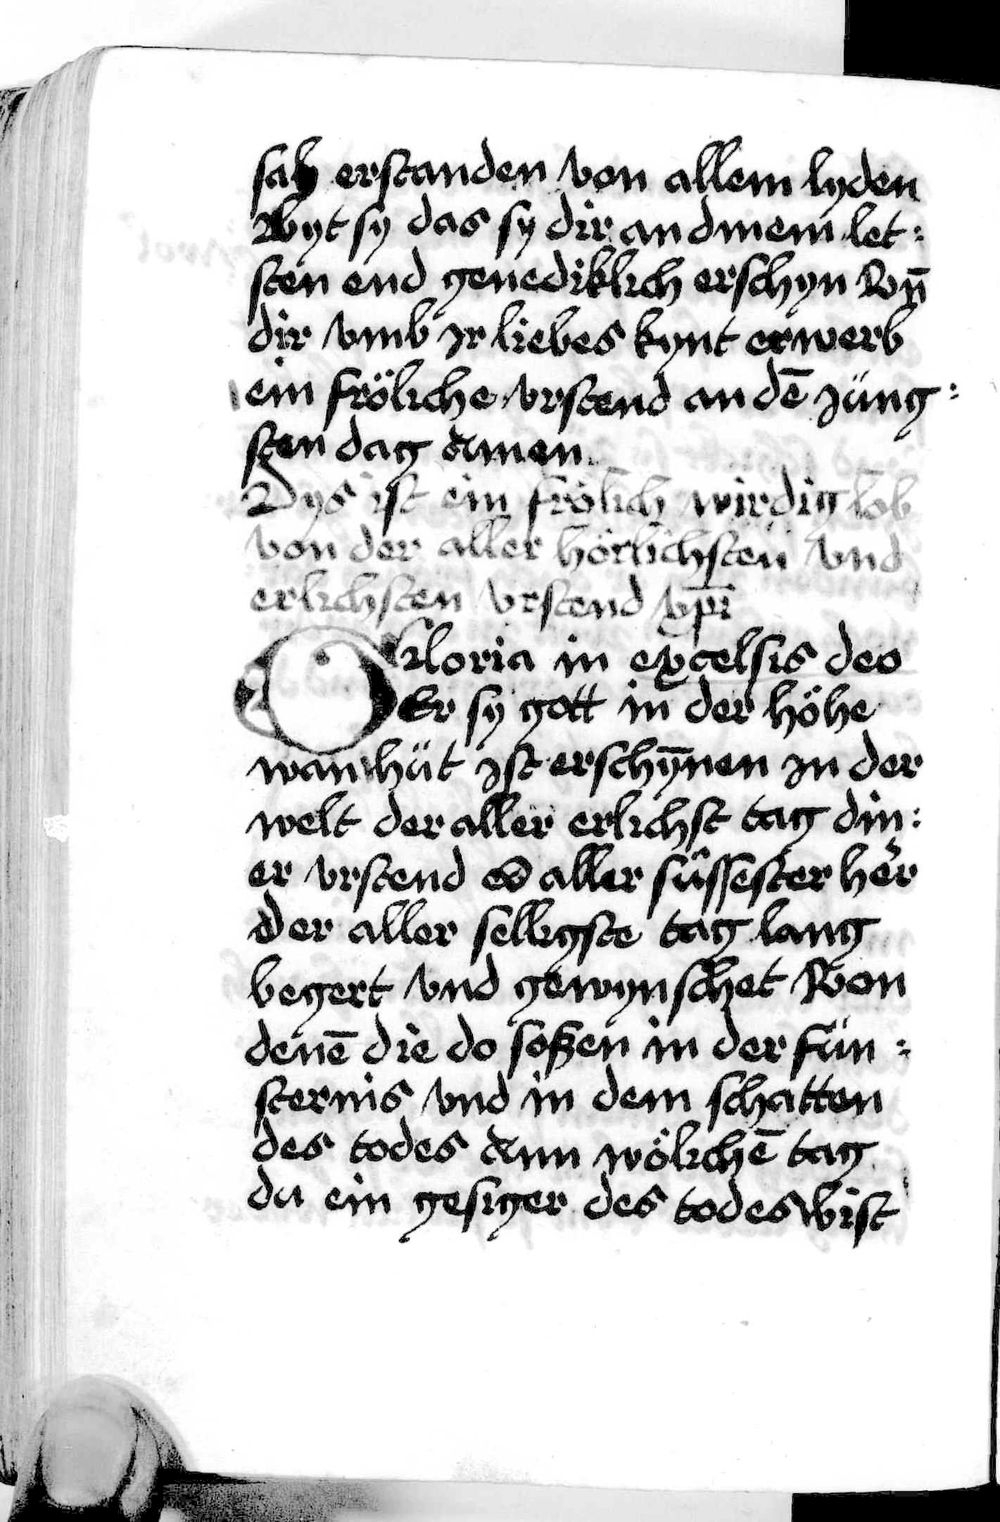 sah erstanden von allem lyden
Byt sy das sy dir an dinem let:
sten end genediklich erschyn Vn̄
dir vmb Jr liebes kynt erwerb
ein fröliche vrstend an dē Jüng:
sten dag Amen.
Dys ist ein frölich wirdig lob
von der aller hörlichsten vnd
erlichsten vrstend xp̄i
Gloria in excelsis deo
Er sy gott in der höhe
wan hüt ist erschȳnen in der
welt der aller erlichst tag din:
er vrstend O aller süssester her
der aller selligste tag lang
begert vnd gewynschet Von
denē die do soßen in der fün:
sternis vnd in dem schatten
des todes Ann wölichē tag
du ein gesiger des todes bist